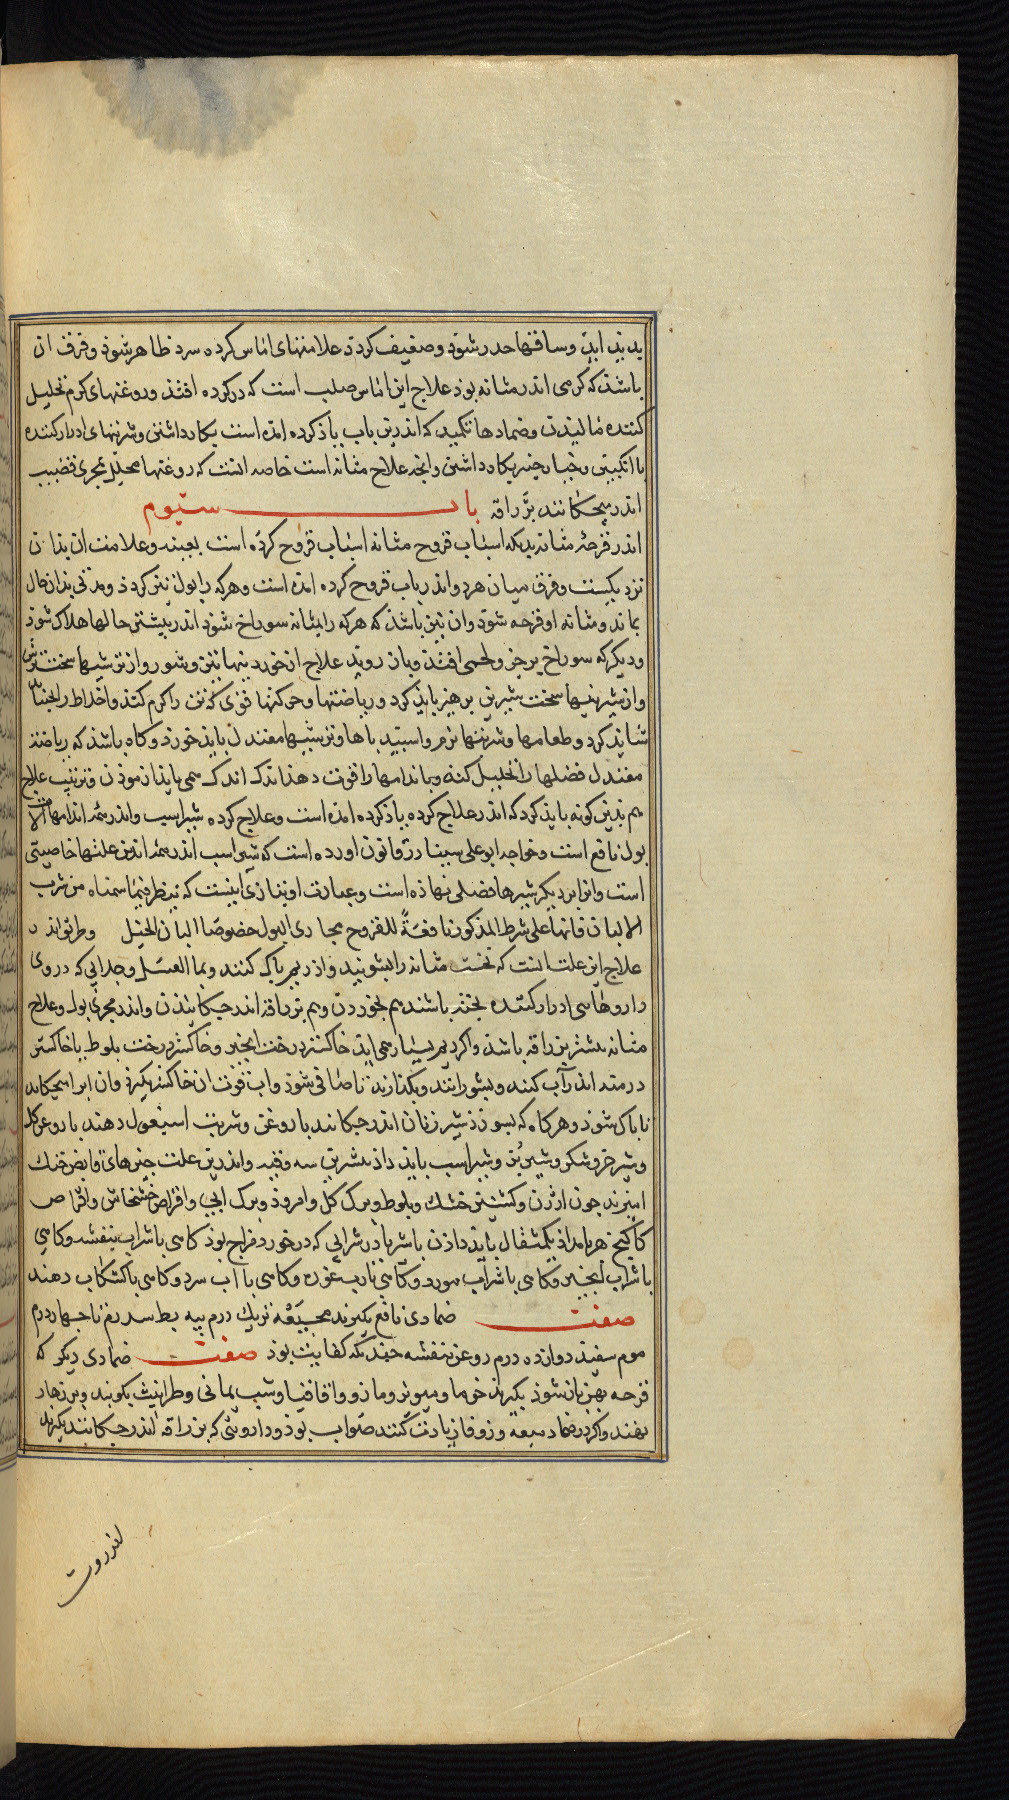 پدید آید و ساقها خدر شوذ و ضعیف کردد علامتهای اماس کرده سرد ظاهر شوذ و فرق ان
باشد که کرمی اندر مثانه بوذ علاج این اماس صلب است که در کرده افتد و روغنهای کرم تحلیل
کننده مالیدن و ضمادها تکمید که اندرین باب یاذ کرده امده است بکار داشتن و شربتهای ادرار کننده
با انکبین و خیار چنبر بکار داشتن وانچه علاج مثانه است خاصه انست که روغنها محلل بمجری قضیب
اندر میچکانند بزراقه باب سیوم
اندر قرحه مثانه بدانکه اسباب قروح مثانه اسباب قروح کرده است بعینه و علامت ان بذان
نزدیکست و فرق میان هردو اندر باب قروح کرده امده است و هرکه را بول تیز کردد و مدتی بدان حال
بماند و مثانه او قرحه شوذ و ان تیز باشد که هرکه را مثانه سوراخ شوذ اندر بیشتر حالها هلاک شوذ
و دیکر که سوراخ بر جز و لحمی افتد و باز روید علاج از خوردنیها تیز و شور و از ترشیها سخت ترش
و از شیرینیها سخت شیرین پرهیز باید کرد و ریاضتها و حرکتها قوی که تن را کرم کند و اخلاط را بجنباند
نشاید کرد و طعامها و شربتها نرم و اسپیدباها و ترشیها معتدل باید خورد و کاه باشد که ریاضت
معتدل فضلها را تحلیل کند و باندامها را قوت دهد اندک اندک می باید ازموذن و ترتیب علاج
هم بدین کونه باید کرد که اندر علاج کرده یاذ کرده امده است و علاج کرده شیر اسب و اندر همه اندامها الات
بول نافع است و خواجه ابو علی سینا در قانون اورده است که شیر اسب اندر همه اندرین علتها خاصیتی
است و انرا بر دیکر شیرها فضلی نهاذه است و عبارت او بتازی اینست که ینظر فیما سمناه من شرب
الالبان فانها علی شرط المذکور نافعة للقروح مجاری البول خصوصا البان الخیل وطریق اندر
علاج این علت انست که نخست مثانه را بشویند و از ریم پاک کنند و بما العسل و جلابی که در وی
داروهای ادرار کننده پخته باشند هم بخوردن و هم بزراقه اندر چکانیدن و اندر مجری بول و علاج
مثانه بیشتر بزراقه باشد و اکر ریم بسیار می اید خاکستر درخت انجیر و خاکستر درخت بلوط یا خاکستر
درمنه اندر آب کنند و بشورانند و بکذارند تا صافی شوذ و اب قوت ان خاکستر بکیرد و ان اب میچکانند
تا پاک شوذ و هرکاه که بسوزد شیر زنان اندر چکانند با روغن و شربت اسبغول دهند با روغن کل
و شیر خر و شکر و شیر بز و شیر اسب باید داد بشربتی سه وقیه و اندرین علت چیزهای قابض خنک
امیزند چون ارزن و کشنیز خشک و بلوط و برک کل و امرود و برک ابی و اقراص خشخاش و اقراص
کاکنج هر بامداذ یکمثقال باید داذن باشیر یا در شرابی که در خورد مزاج بوذ کاهی باشراب بنفشه و کاهی
باشراب انجیر و کاهی باشراب مورد و کاهی با رب غوره و کاهی با اب سرد و کاهی با کشکاب دهند
صفت ضمادی نافع بکیرند میعه تر یک درم پیه بط سه درم تا چهار درم
موم سفید دوازده درم روغن بنفشه چندانکه کفایت بوذ صفت ضمادی دیکر که
قرحه بهتر بان شوذ بکیرند خرما و میویز و مازو و اقاقیا و شب یمانی و طراثیث بکوبند و بر زهار
نهند و اکر در ضماد میعه و زوفا زیادت کنند صواب بوذ و داروئی که بزراقه اندر چکانند بکیرند
انزروت